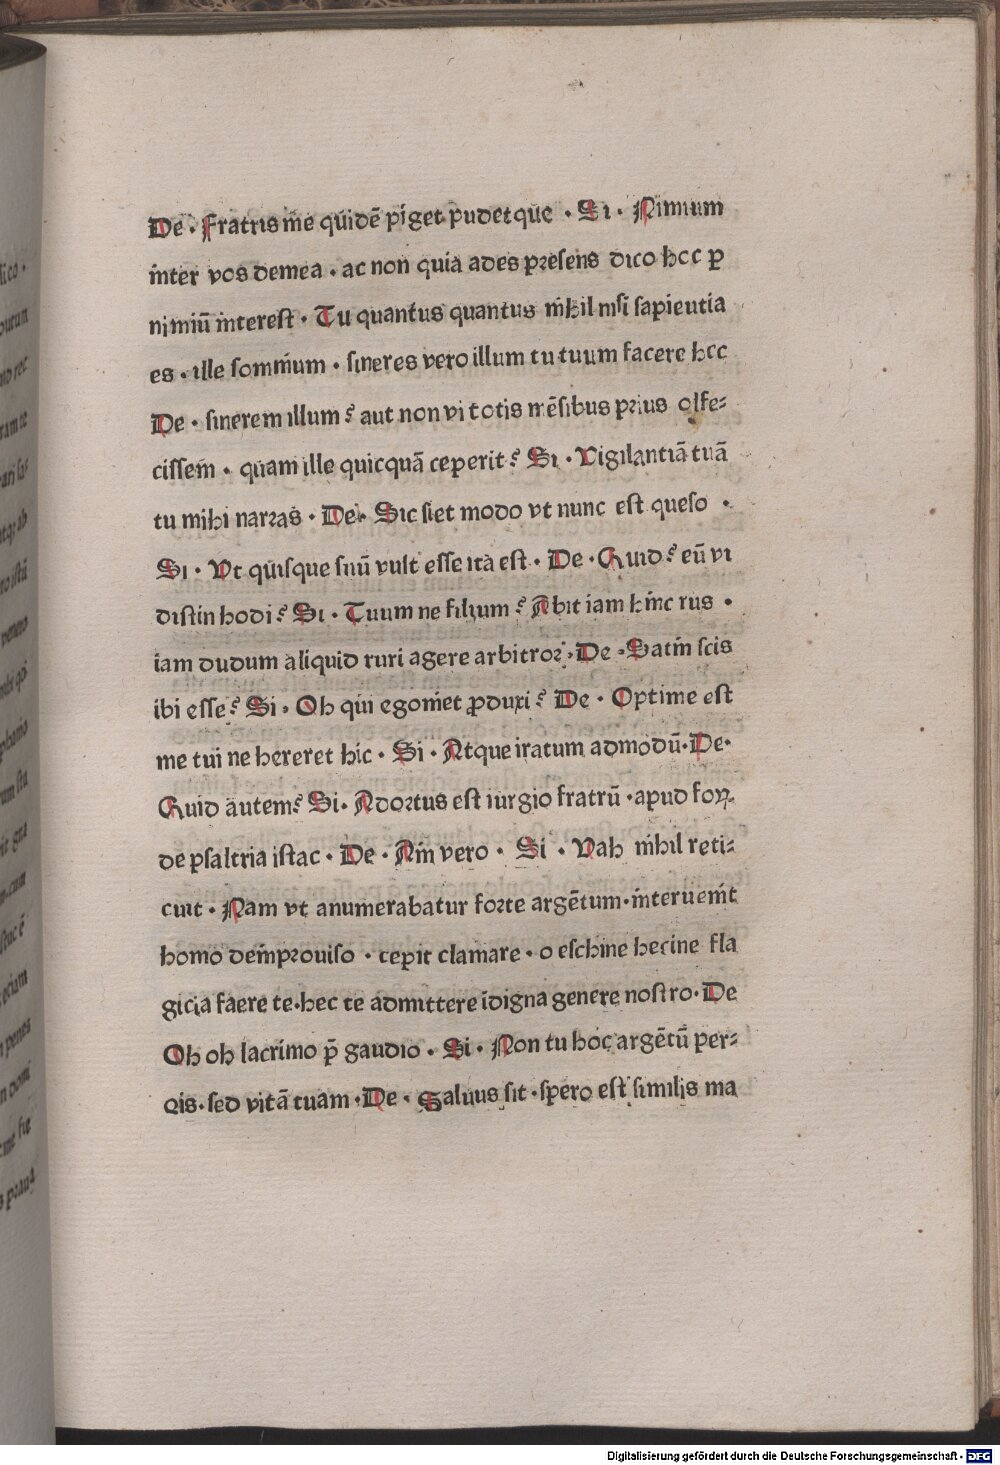 De · Fratris me quidē piget pudetque · Si · Nimium
inter vos demea · ac non quia ades presens dico hoc p
nimiū interest · Tu quantus quantus nihil nisi sapieutia
es · ille somnium · sineres vero illum tu tuum facere hec
De · sinerem illum? aut non vi totis mēsibus prius olfe-
cissem · quam ille quicquā ceperit? Si · Vigilantiā tuā
tu mihi narras · De · Sic siet modo vt nunc est queso ·
Si · Vt quisque suū vult esse ita est · De · Quid? eū vi
distin hodi? Si · Tuum ne filium? Abit iam hinc rus ·
iam dudum aliquid ruri agere arbitror · De · Satin scis
ibi esse? Si · Oh qui egomet ꝓduxi? De · Optime est
me tui ne hereret hic · Si · Atque iratum admodū · De ·
Quid autem? Si · Adortus est iurgio fratrū · apud foꝝ
de psaltria istac · De · Ain vero · Si · Vah nihil reti-
cuit · Nam vt anumerabatur forte argētum · interuenit
homo deimprouiso · cepit clamare · o eschine hecine fla
gicia faere te · hec te admittere īdigna genere nostro · De
Oh oh lacrimo p̄ gaudio · Si · Non tu hoc argētū per-
dis · sed vitā tuam · De · Saluus sit · spero est similis ma
Digitalisierung gefördert durch die Deutsche Forschungsgemeinschaft - DFG